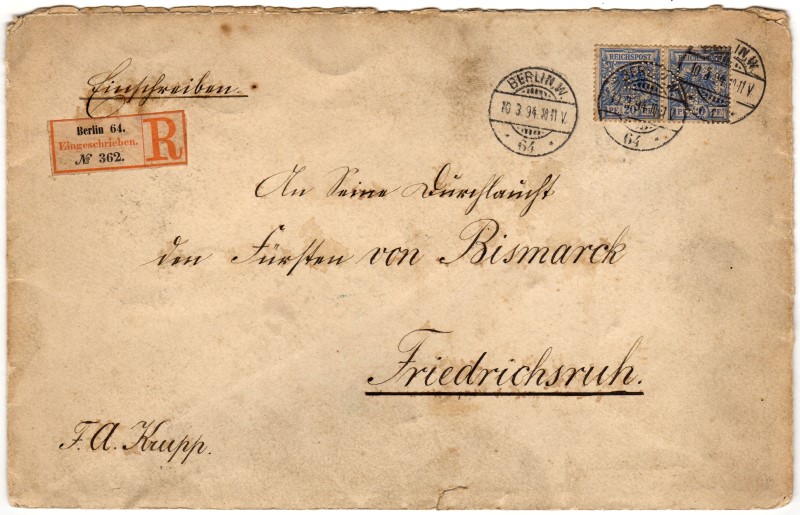 Einschreiben.
Berlin 64.
Eingeschrieben.
№ 362.
R
BERLIN.W.
10 3.94.10-11 V.
64
REICHSPOST
An Seine Durchlaucht
den Fürsten von Bismarck
Friedrichsruh.
F. A. Krupp.